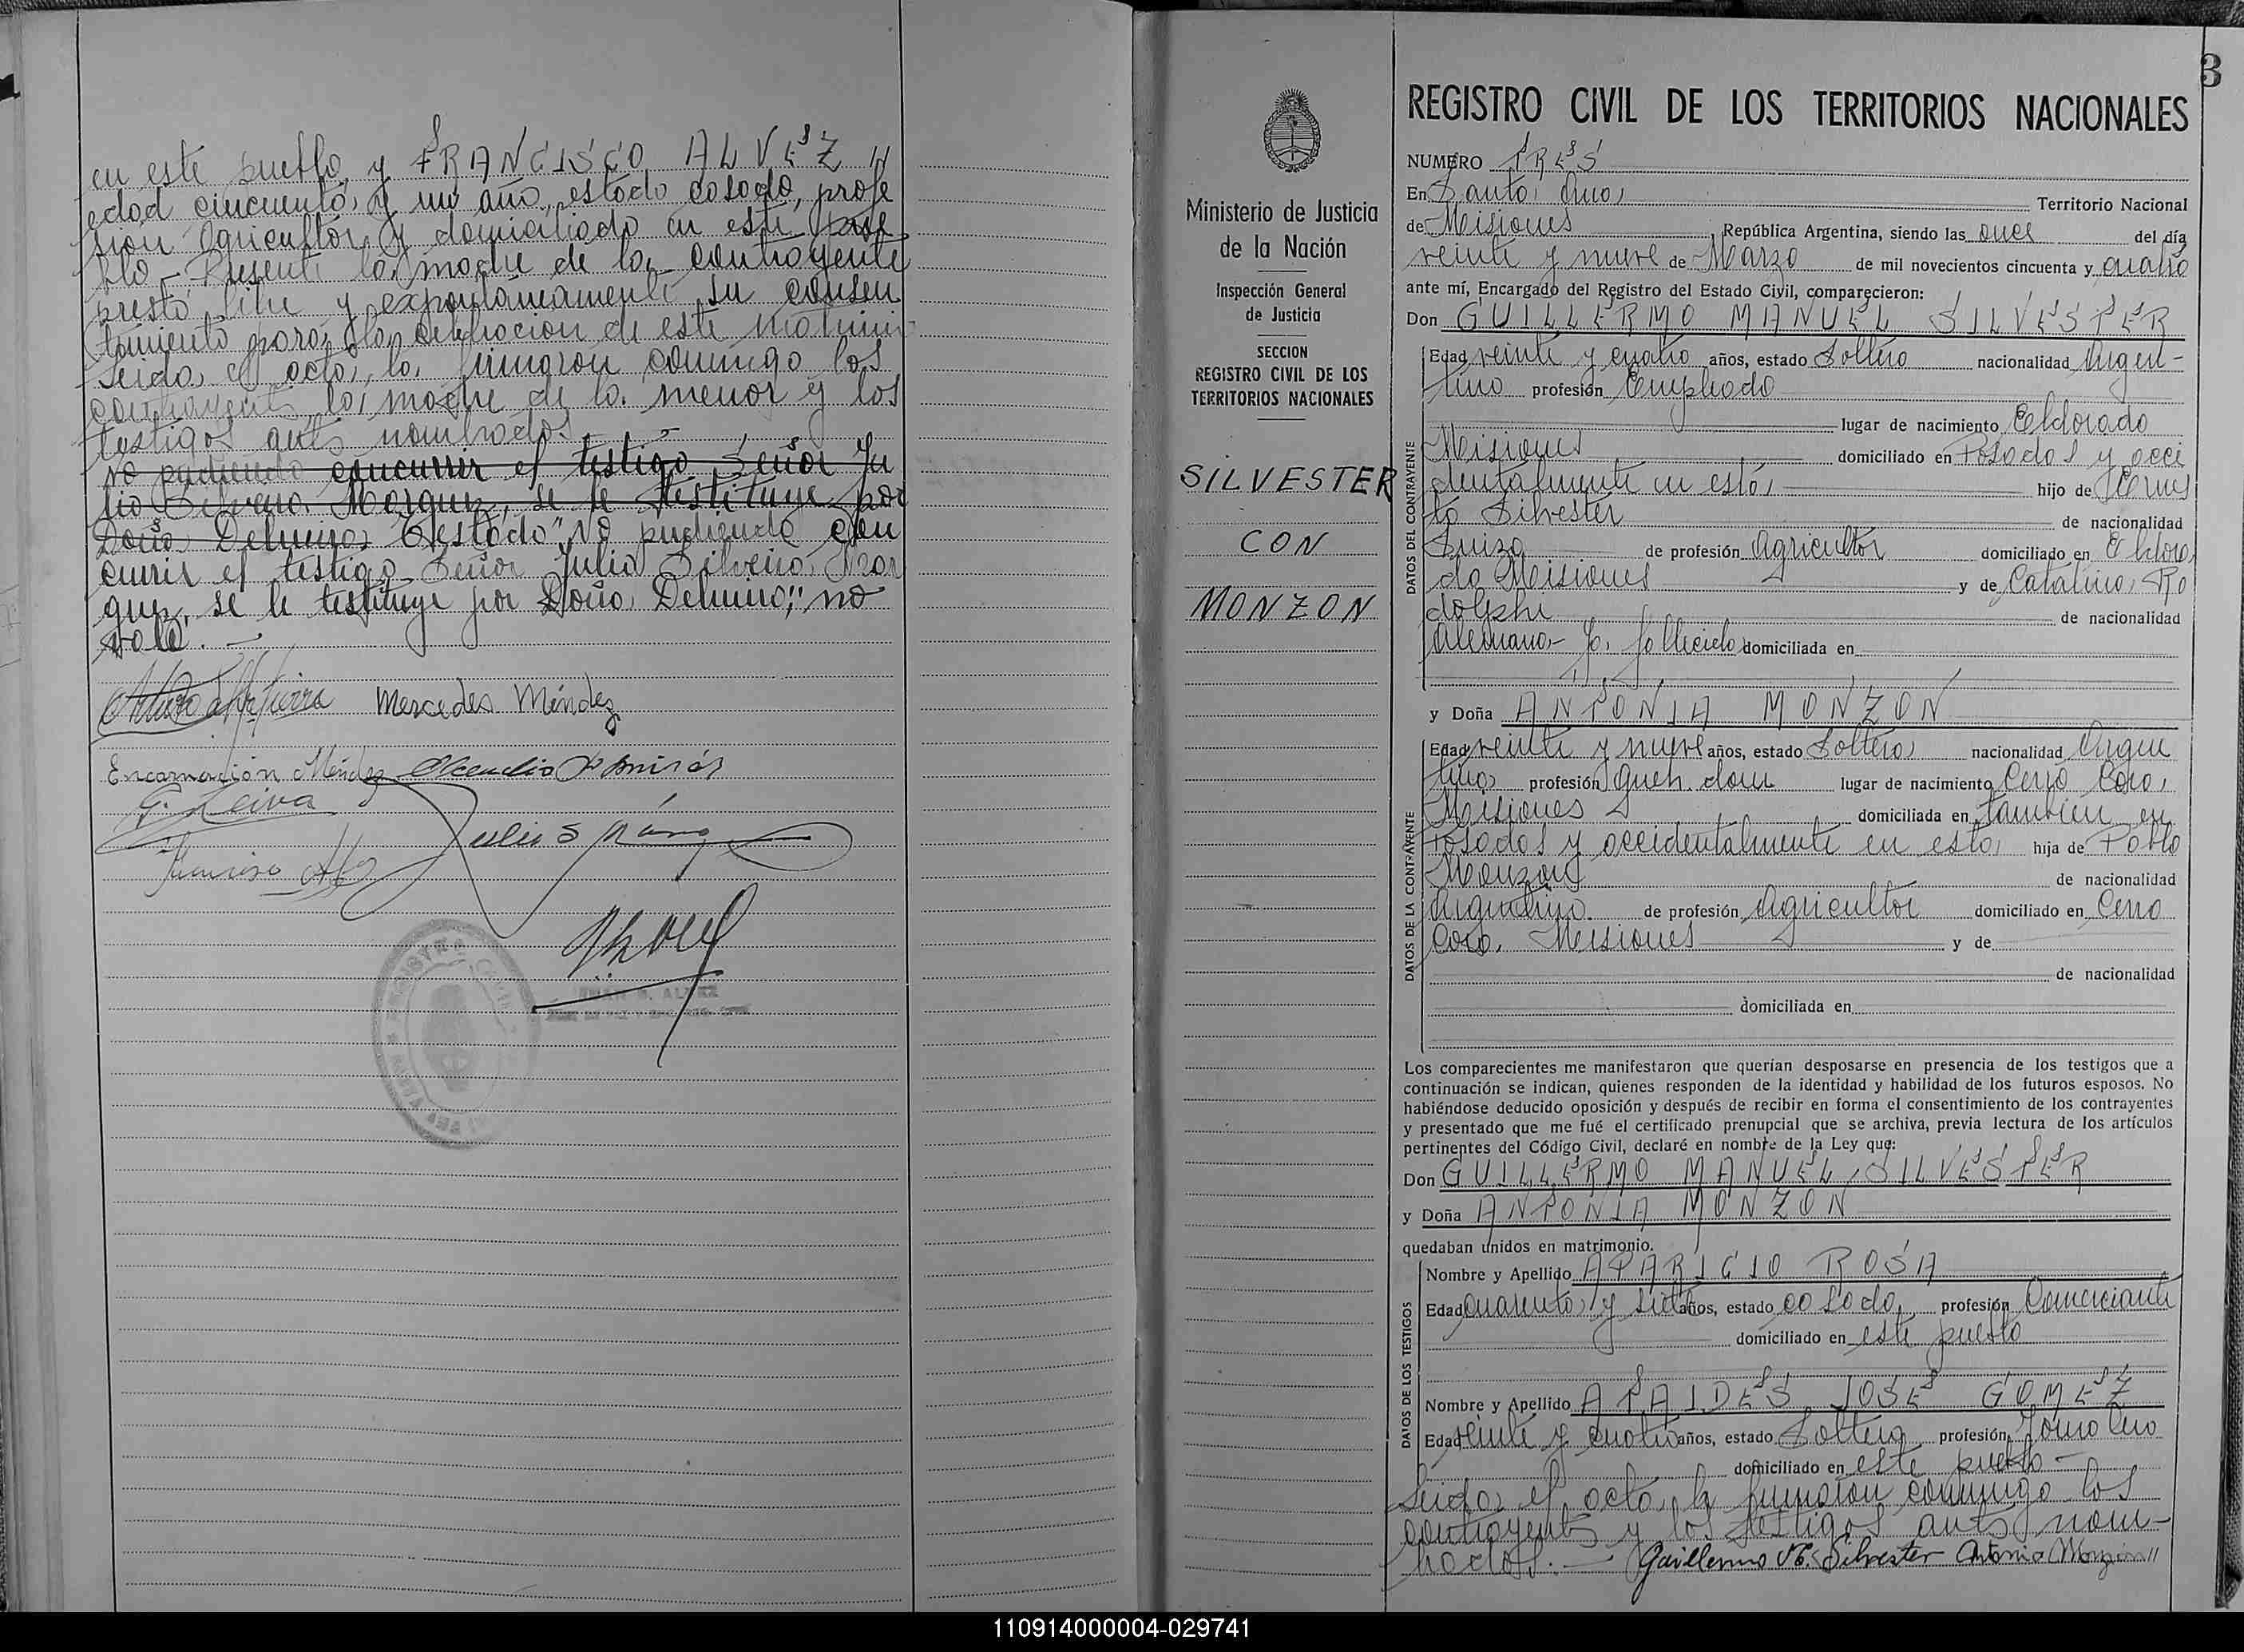 en este pueblo, y FRANCISCO ALVEZ
edad cincuenta y un año, estado casado, profe
sión Agricultor y domiciliado en este pue
blo - Presente la madre de la contrayente
prestó libre y expontáneamente su consen
timiento para la celebración de este matrimo
Leida el acta, la firmaron conmigo los
contrayentes la madre de la menor y los
testigos antes nombrados
No pudiendo concurrir el testigo Señor Ju
lio Silverio Marquez, se le testituye por
Doña Delmira Testado "No pudiendo con
currir el testigo Señor Julio Silverio Mar
quez, se le testituye por Doña Delmira"; no
vale. -
Mercedes Méndez
Encarnación Méndez
G. Leiva
Julio S
Francisco
3
REGISTRO CIVIL DE LOS TERRITORIOS NACIONALES
Ministerio de Justicia
de la Nación
Inspección General
de Justicia
SECCION
REGISTRO CIVIL DE LOS
TERRITORIOS NACIONALES
SILVESTER
CON
MONZON
NUMERO TRES
En Santa Ana Territorio Nacional
de Misiones República Argentina, siendo las once del día
veinte y nueve de Marzo de mil novecientos cincuenta y cuatro
ante mí, Encargado del Registro del Estado Civil, comparecieron:
Don GUILLERMO MANUEL SILVESTER
DATOS DEL CONTRAYENTE
Edad veinte y cuatro años, estado Soltero nacionalidad Argen-
tino profesión Empleado
lugar de nacimiento Eldorado
Misiones domiciliado en Posadas y acci
dentalmente en esta, hijo de Ernes
to Silvester de nacionalidad
Suiza de profesión Agricultor domiciliado en Eldora
do Misiones y de Catalina Ro
dolphi de nacionalidad
Alemana - ya fallecida domiciliada en
y Doña ANTONIA MONZON
DATOS DE LA CONTRAYENTE
Edad veinte y nueve años, estado Soltera nacionalidad Argen
tina profesión Queh. dom lugar de nacimiento Cerro Corá,
Misiones domiciliada en también en
Posadas y accidentalmente en esta hija de Pablo
Monzon de nacionalidad
Argentino de profesión Agricultor domiciliado en Cerro
Corá, Misiones y de
de nacionalidad
domiciliada en
Los comparecientes me manifestaron que querían desposarse en presencia de los testigos que a
continuación se indican, quienes responden de la identidad y habilidad de los futuros esposos. No
habiéndose deducido oposición y después de recibir en forma el consentimiento de los contrayentes
y presentado que me fué el certificado prenupcial que se archiva, previa lectura de los artículos
pertinentes del Código Civil, declaré en nombre de la Ley que:
Don GUILLERMO MANUEL SILVESTER
y Doña ANTONIA MONZON
quedaban unidos en matrimonio.
DATOS DE LOS TESTIGOS
Nombre y Apellido APARICIO ROSA
Edad cuarenta y siete años, estado casado, profesión Comerciante
domiciliado en este pueblo
Nombre y Apellido ATAIDES JOSE GOMEZ
Edad veinte y cuatro años, estado Soltero profesión Jornalero
domiciliado en este pueblo -
Leida el acta, la firmaron conmigo los
contrayentes y los testigos antes nom-
brados. - Guillermo M. Silvester Antonia Monzón
110914000004-029741